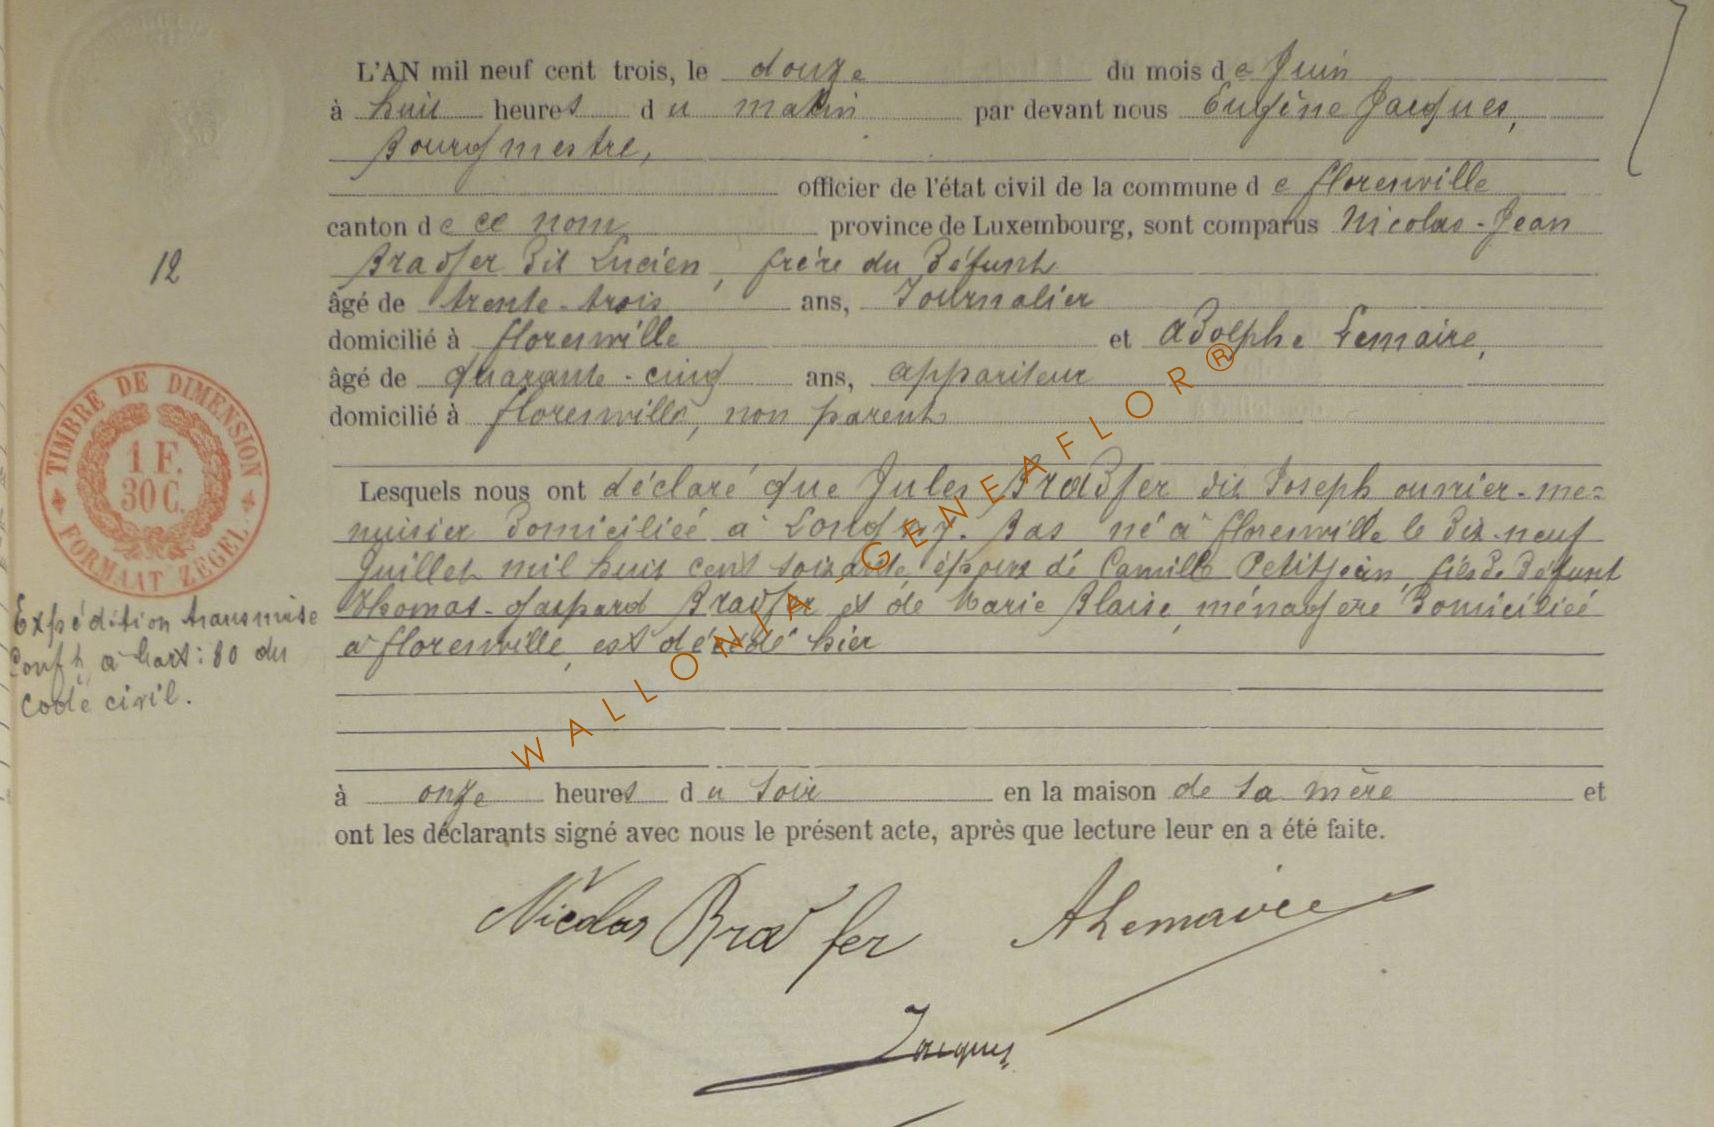 L'AN mil neuf cent trois, le douze du mois de Juin
à huit heures du matin par devant nous Eugène Jacques,
Bourgmestre,
officier de l'état civil de la commune de florenville
canton de ce nom province de Luxembourg, sont comparus Nicolas-Jean
Bradfer dit Lucien, frère du défunt
12
âgé de trente-trois ans, Journalier
domicilié à florenville et Adolphe Lemaire,
âgé de quarante-cinq ans, appariteur
domicilié à florenville, non parent
TIMBRE DE DIMENSION
1 F.
30 C.
FORMAAT ZEGEL
Lesquels nous ont déclaré que Jules Bradfer dit Joseph ouvrier-me=
nuisier domiciliéé à Longwy-Bas né à florenville le dix-neuf
Juillet mil huit cent soixante, époux de Camille Petitjean, fils de défunt
Thomas-Gaspard Bradfer et de Marie Blaise, ménagère domiciliéé
à florenville, est décédé hier
Expédition transmise
Conft à l'art: 80 du
Code civil.
à onze heures du soir en la maison de sa mère et
ont les déclarants signé avec nous le présent acte, après que lecture leur en a été faite.
Nicolas Bradfer ALemaire
Jacques
WALLONIA-GENEAFLOR®